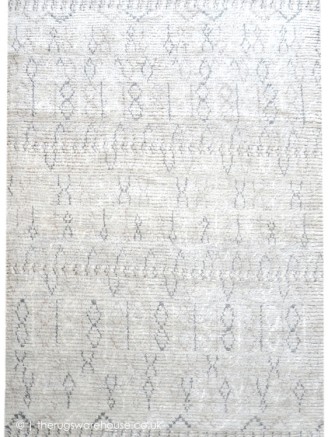 © therugswarehouse.co.uk